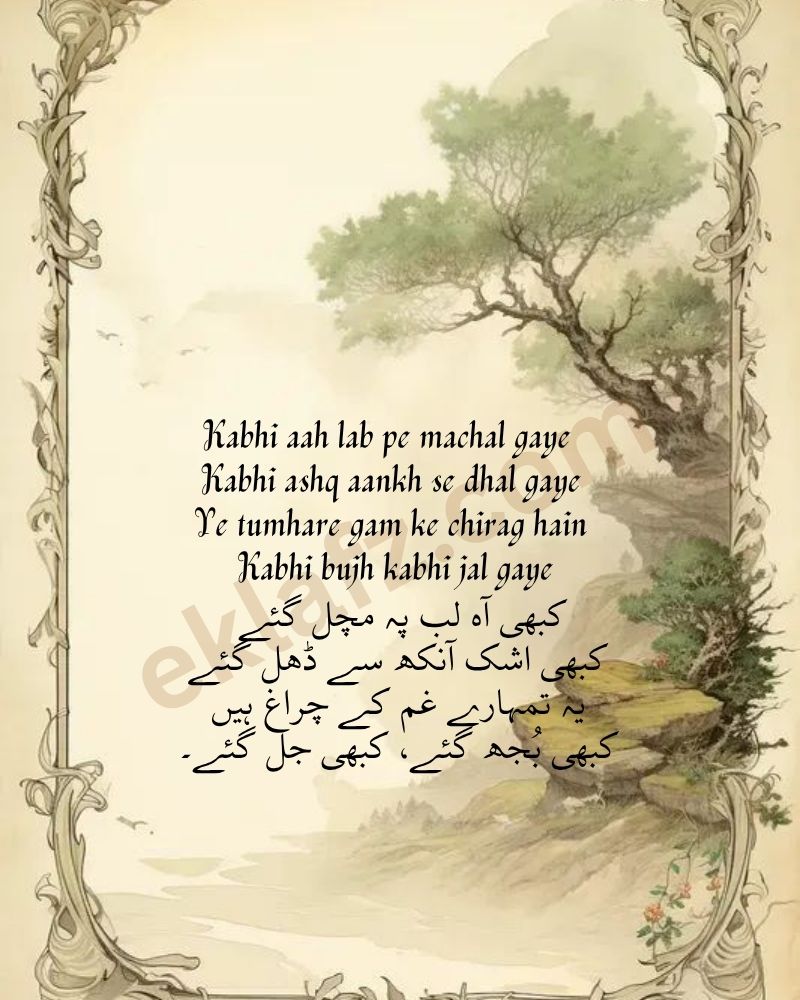 Kabhi aah lab pe machal gaye
Kabhi ashq aankh se dhal gaye
Ye tumhare gam ke chirag hain
Kabhi bujh kabhi jal gaye
کبھی آہ لب پہ مچل گئے
کبھی اشک آنکھ سے ڈھل گئے
یہ تمہارے غم کے چراغ ہیں
کبھی بُجھ گئے، کبھی جل گئے۔
eklafz.com